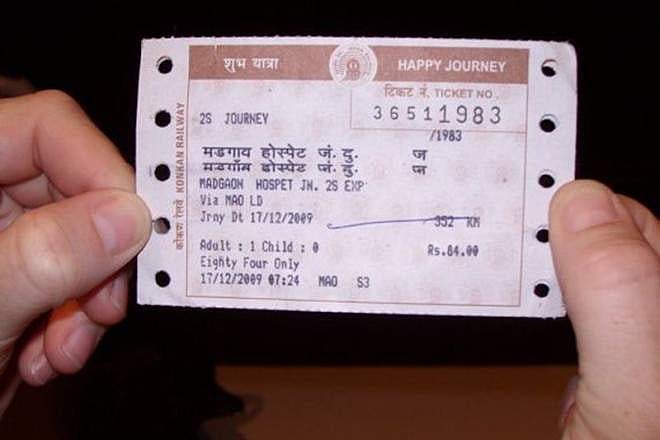 शुभ यात्रा HAPPY JOURNEY
टिकट नं. TICKET NO.
36511983
2S JOURNEY
/1983
मडगाव होस्पेट जं. दु. ज
मडगाँव होस्पेट जं. दु. ज
MADGAON HOSPET JN. 2S EXP
Via MAO LD
Jrny Dt 17/12/2009 352 KM
Adult : 1 Child : 0 Rs.84.00
Eighty Four Only
17/12/2009 07:24 MAO S3
कोंकण रेलवे KONKAN RAILWAY